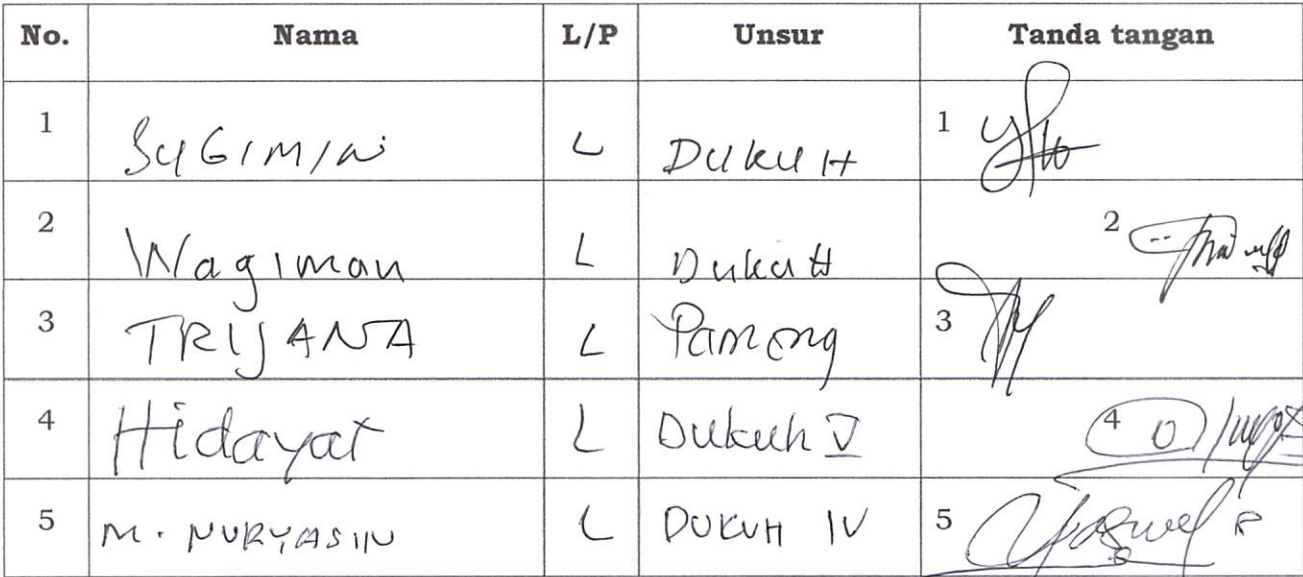 No. Nama L/P Unsur Tanda tangan
1 SUGIMIN L DUKUH 1
2 Wagiman L DukuH 2
3 TRIJANA L Pamong 3
4 Hidayat L Dukuh V 4
5 M. NURYASIN L DUKUH IV 5